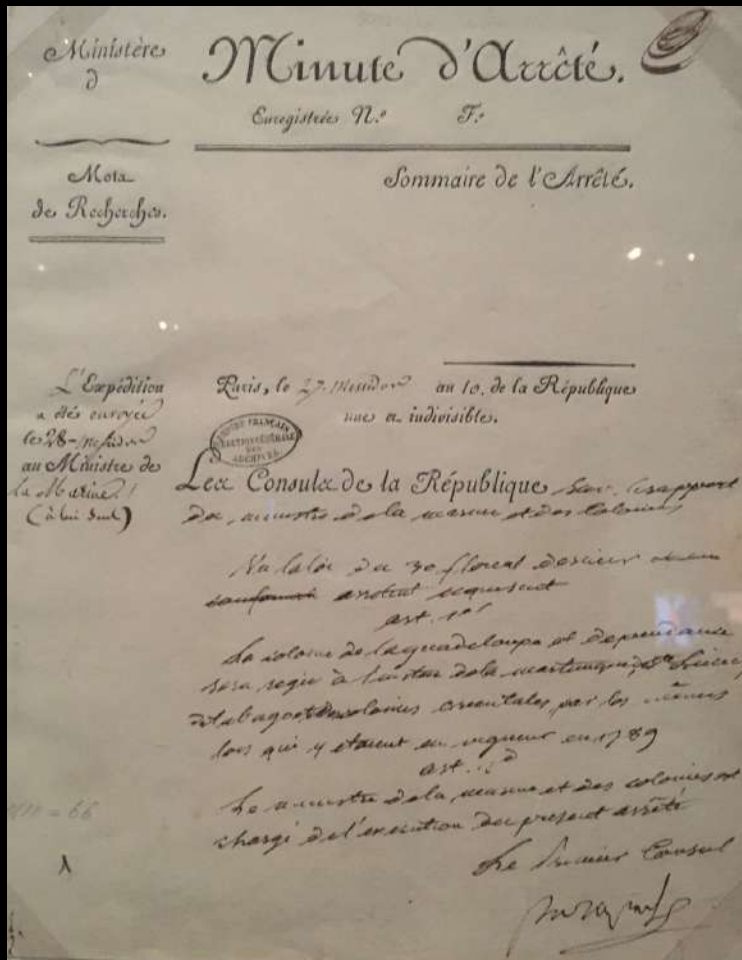 Ministère
d
Minute d'Arrêté.
Enregistrée N.º F.º
Mots
de Recherches.
Sommaire de l'Arrêté.
L'Expédition
a été envoyée
le 28 messidor
au Ministre de
la Marine.
(à lui seul)
Paris, le 27 Messidor an 10. de la République
une et indivisible.
EMPIRE FRANÇAIS
DIRECTION GÉNÉRALE
DES
ARCHIVES
Les Consuls de la République, sur le rapport
du ministre de la marine et des Colonies
Vu la loi du 30 floreal dernier
arretent
art. 1er
La colonie de la guadeloupe et dependances
sera regie à l'instar de la martinique, de Ste Lucie,
de tabago et des colonies orientales par les mêmes
lois qui y etaient en vigueur en 1789
art. 2
Le ministre de la marine et des colonies est
chargé de l'execution du present arrêté
Le Premier Consul